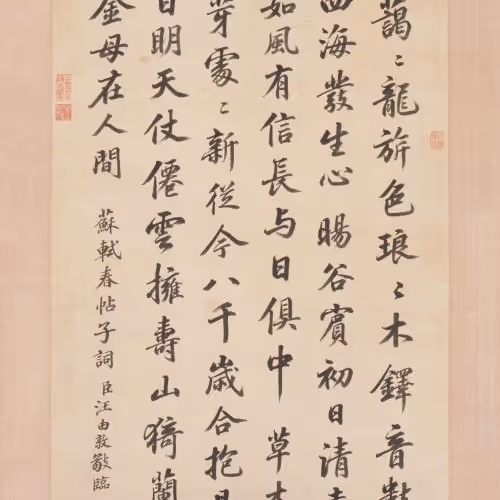 藹〻龍旂色琅〻木鐸音數
四海發生心暘谷賓初日清
如風有信長与日俱中草木
芽處〻新從今八千歲合抱
日明天仗僊雲擁壽山猗蘭
金母在人間
蘇軾春帖子詞 臣汪由敦敬臨